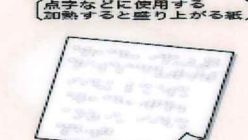 点字などに使用する
加熱すると盛り上がる紙